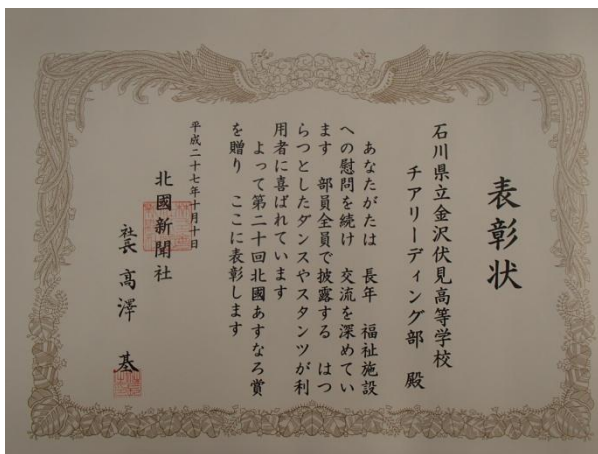 表彰状
石川県立金沢伏見高等学校
チアリーディング部 殿
あなたがたは 長年 福祉施設
への慰問を続け 交流を深めてい
ます 部員全員で披露する はつ
らつとしたダンスやスタンツが利
用者に喜ばれています
よって第二十回北國あすなろ賞
を贈り ここに表彰します
平成二十七年十月十日
北國新聞社
社長 高澤 基